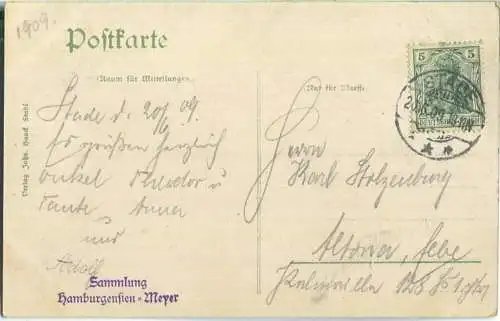 1909.
Postkarte
Raum für Mitteilungen
Nur für Adresse.
5 5
Stade d. 20/6 09.
Es grüßen herzlich
Onkel Theodor u
Tante Anna
und
Adolf
Herrn
Karl Stolzenburg
Altona, Elbe
128
Sammlung
Hamburgensien-Meyer
Verlag Johs. Hauf, Stade